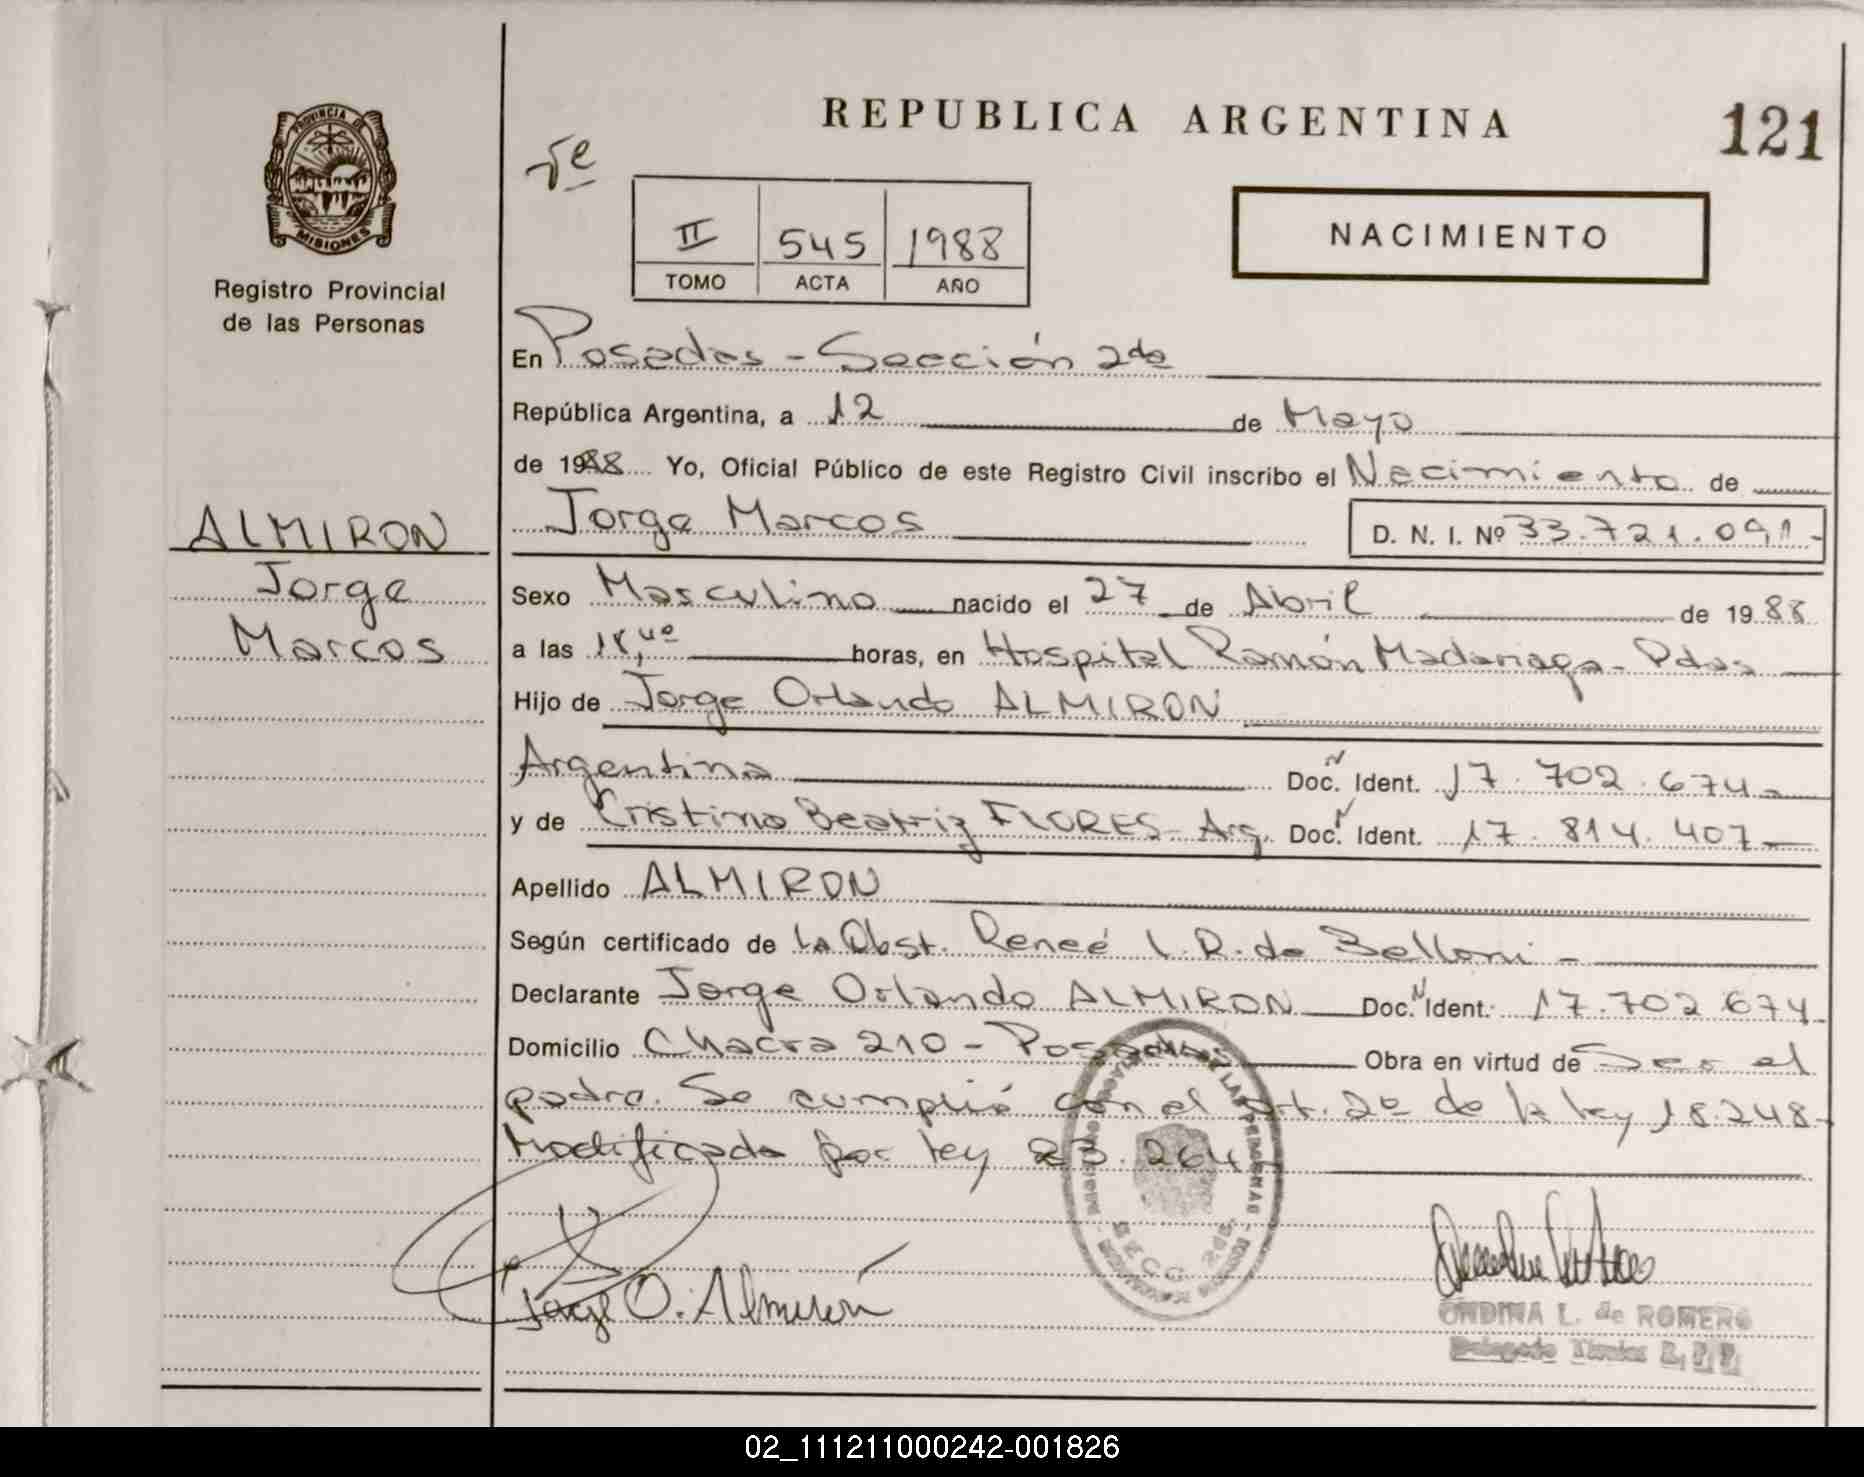 PROVINCIA DE
MISIONES
Registro Provincial
de las Personas
ALMIRON
Jorge
Marcos
REPUBLICA ARGENTINA
121
II 545 1988
TOMO ACTA AÑO
NACIMIENTO
En Posadas - Sección 2da
República Argentina, a 12 de Mayo
de 1988 Yo, Oficial Público de este Registro Civil inscribo el Nacimiento de
Jorge Marcos D. N. I. Nº 33.721.091.-
Sexo Masculino nacido el 27 de Abril de 1988
a las 18,40 horas, en Hospital Ramón Madariaga - Pdas
Hijo de Jorge Orlando ALMIRON
Argentina Doc. N Ident. 17.702.674.-
y de Cristina Beatriz FLORES - Arg. Doc. N Ident. 17.814.407.-
Apellido ALMIRON
Según certificado de la Obst. Reneé L. R. de Belloni -
Declarante Jorge Orlando ALMIRON Doc. N Ident. 17.702.674
Domicilio Chacra 210 - Posadas Obra en virtud de Ser el
padre. Se cumplió con el Art. 2º de la ley 18.248-
Modificada por ley 23.264-
Jorge O. Almirón
ONDINA L. de ROMERO
02_111211000242-001826